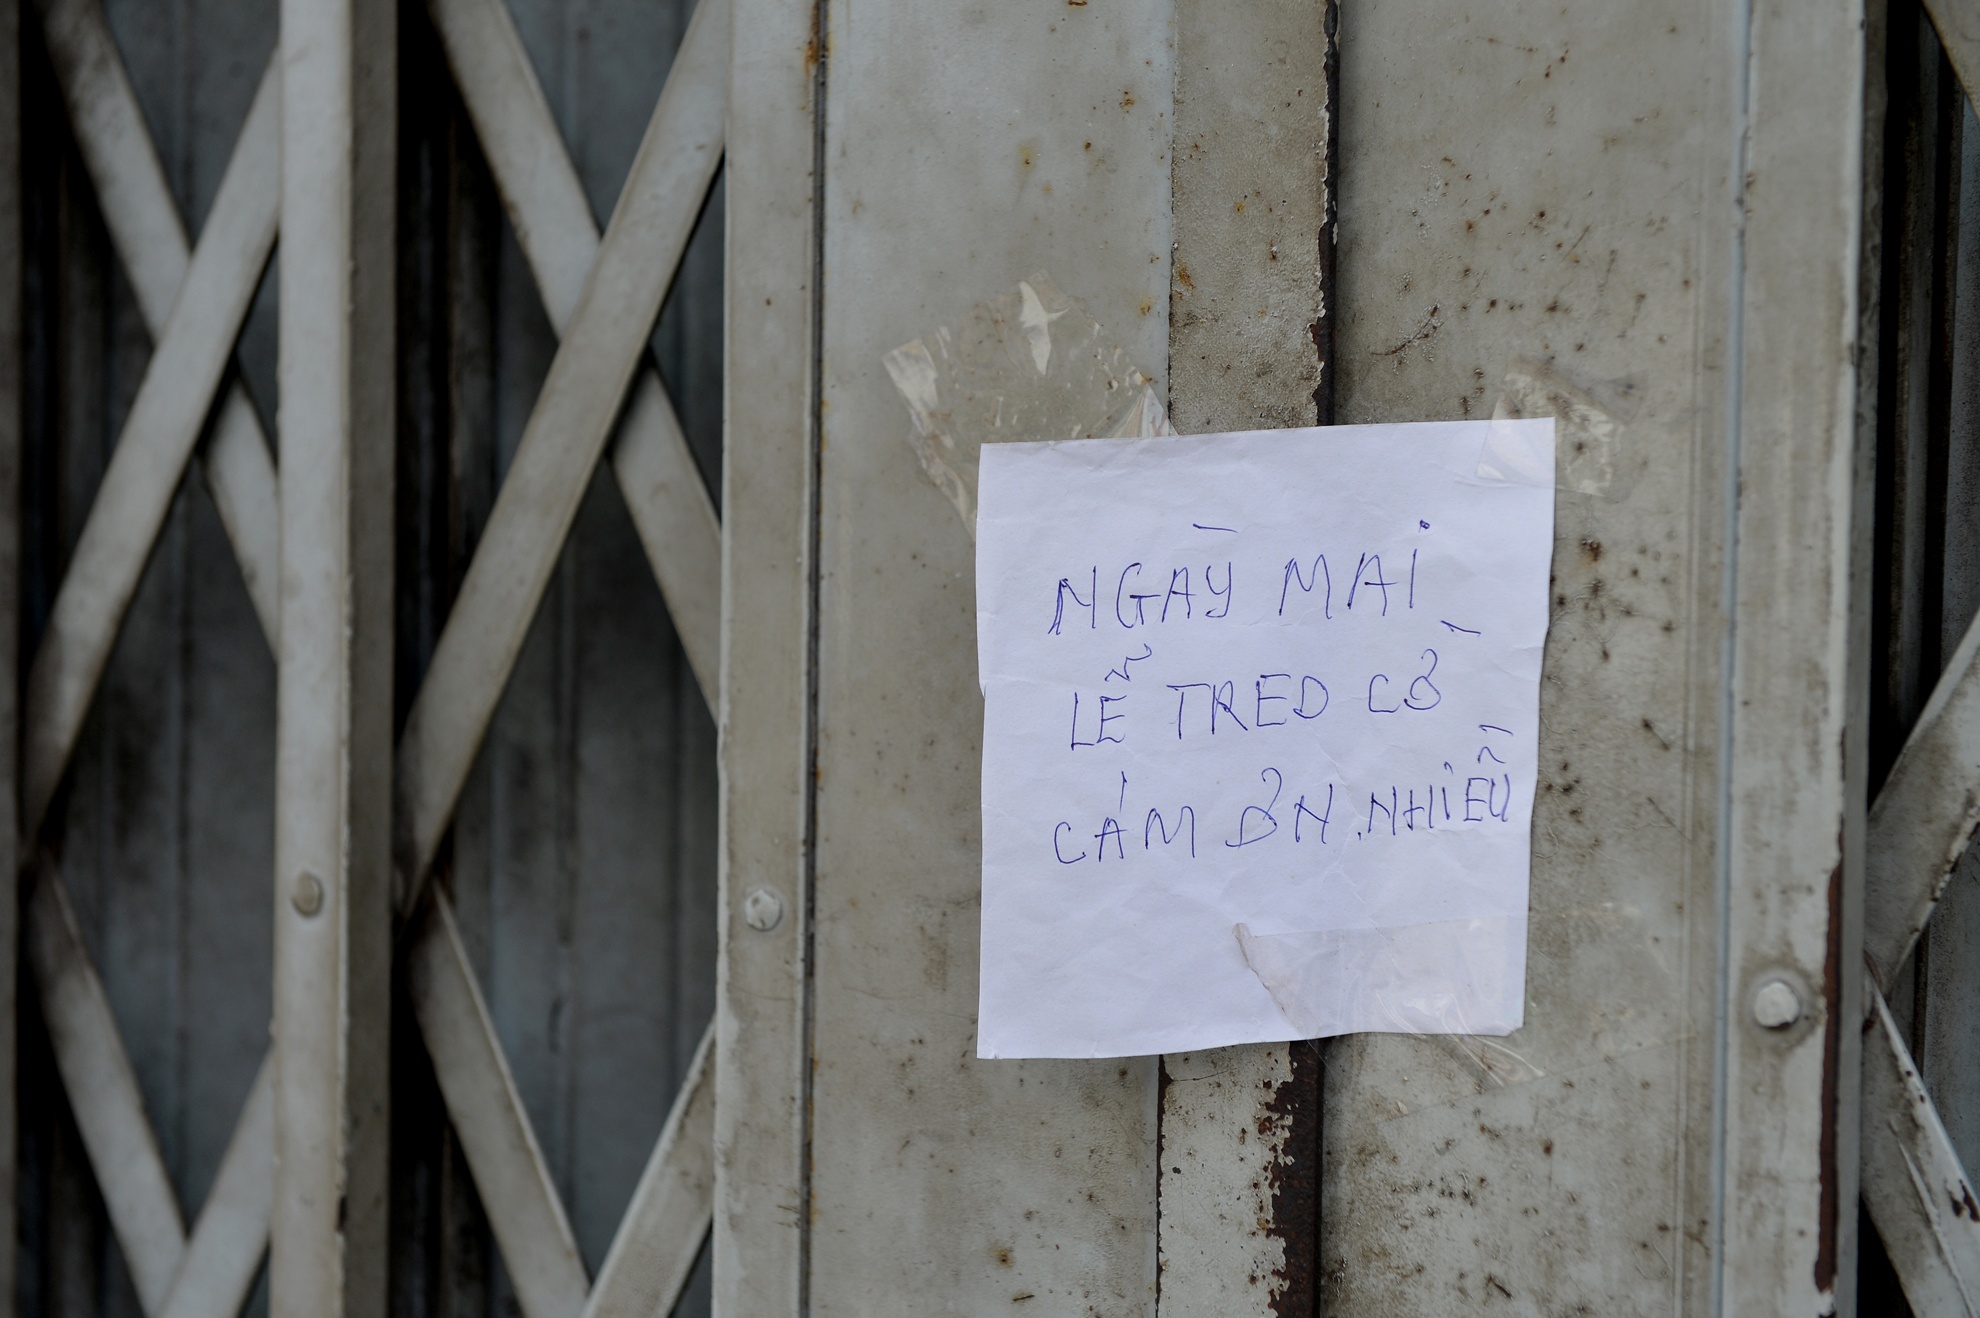 NGÀY MAI
LỄ TRED CỜ
CÁM ƠN NHIỀU